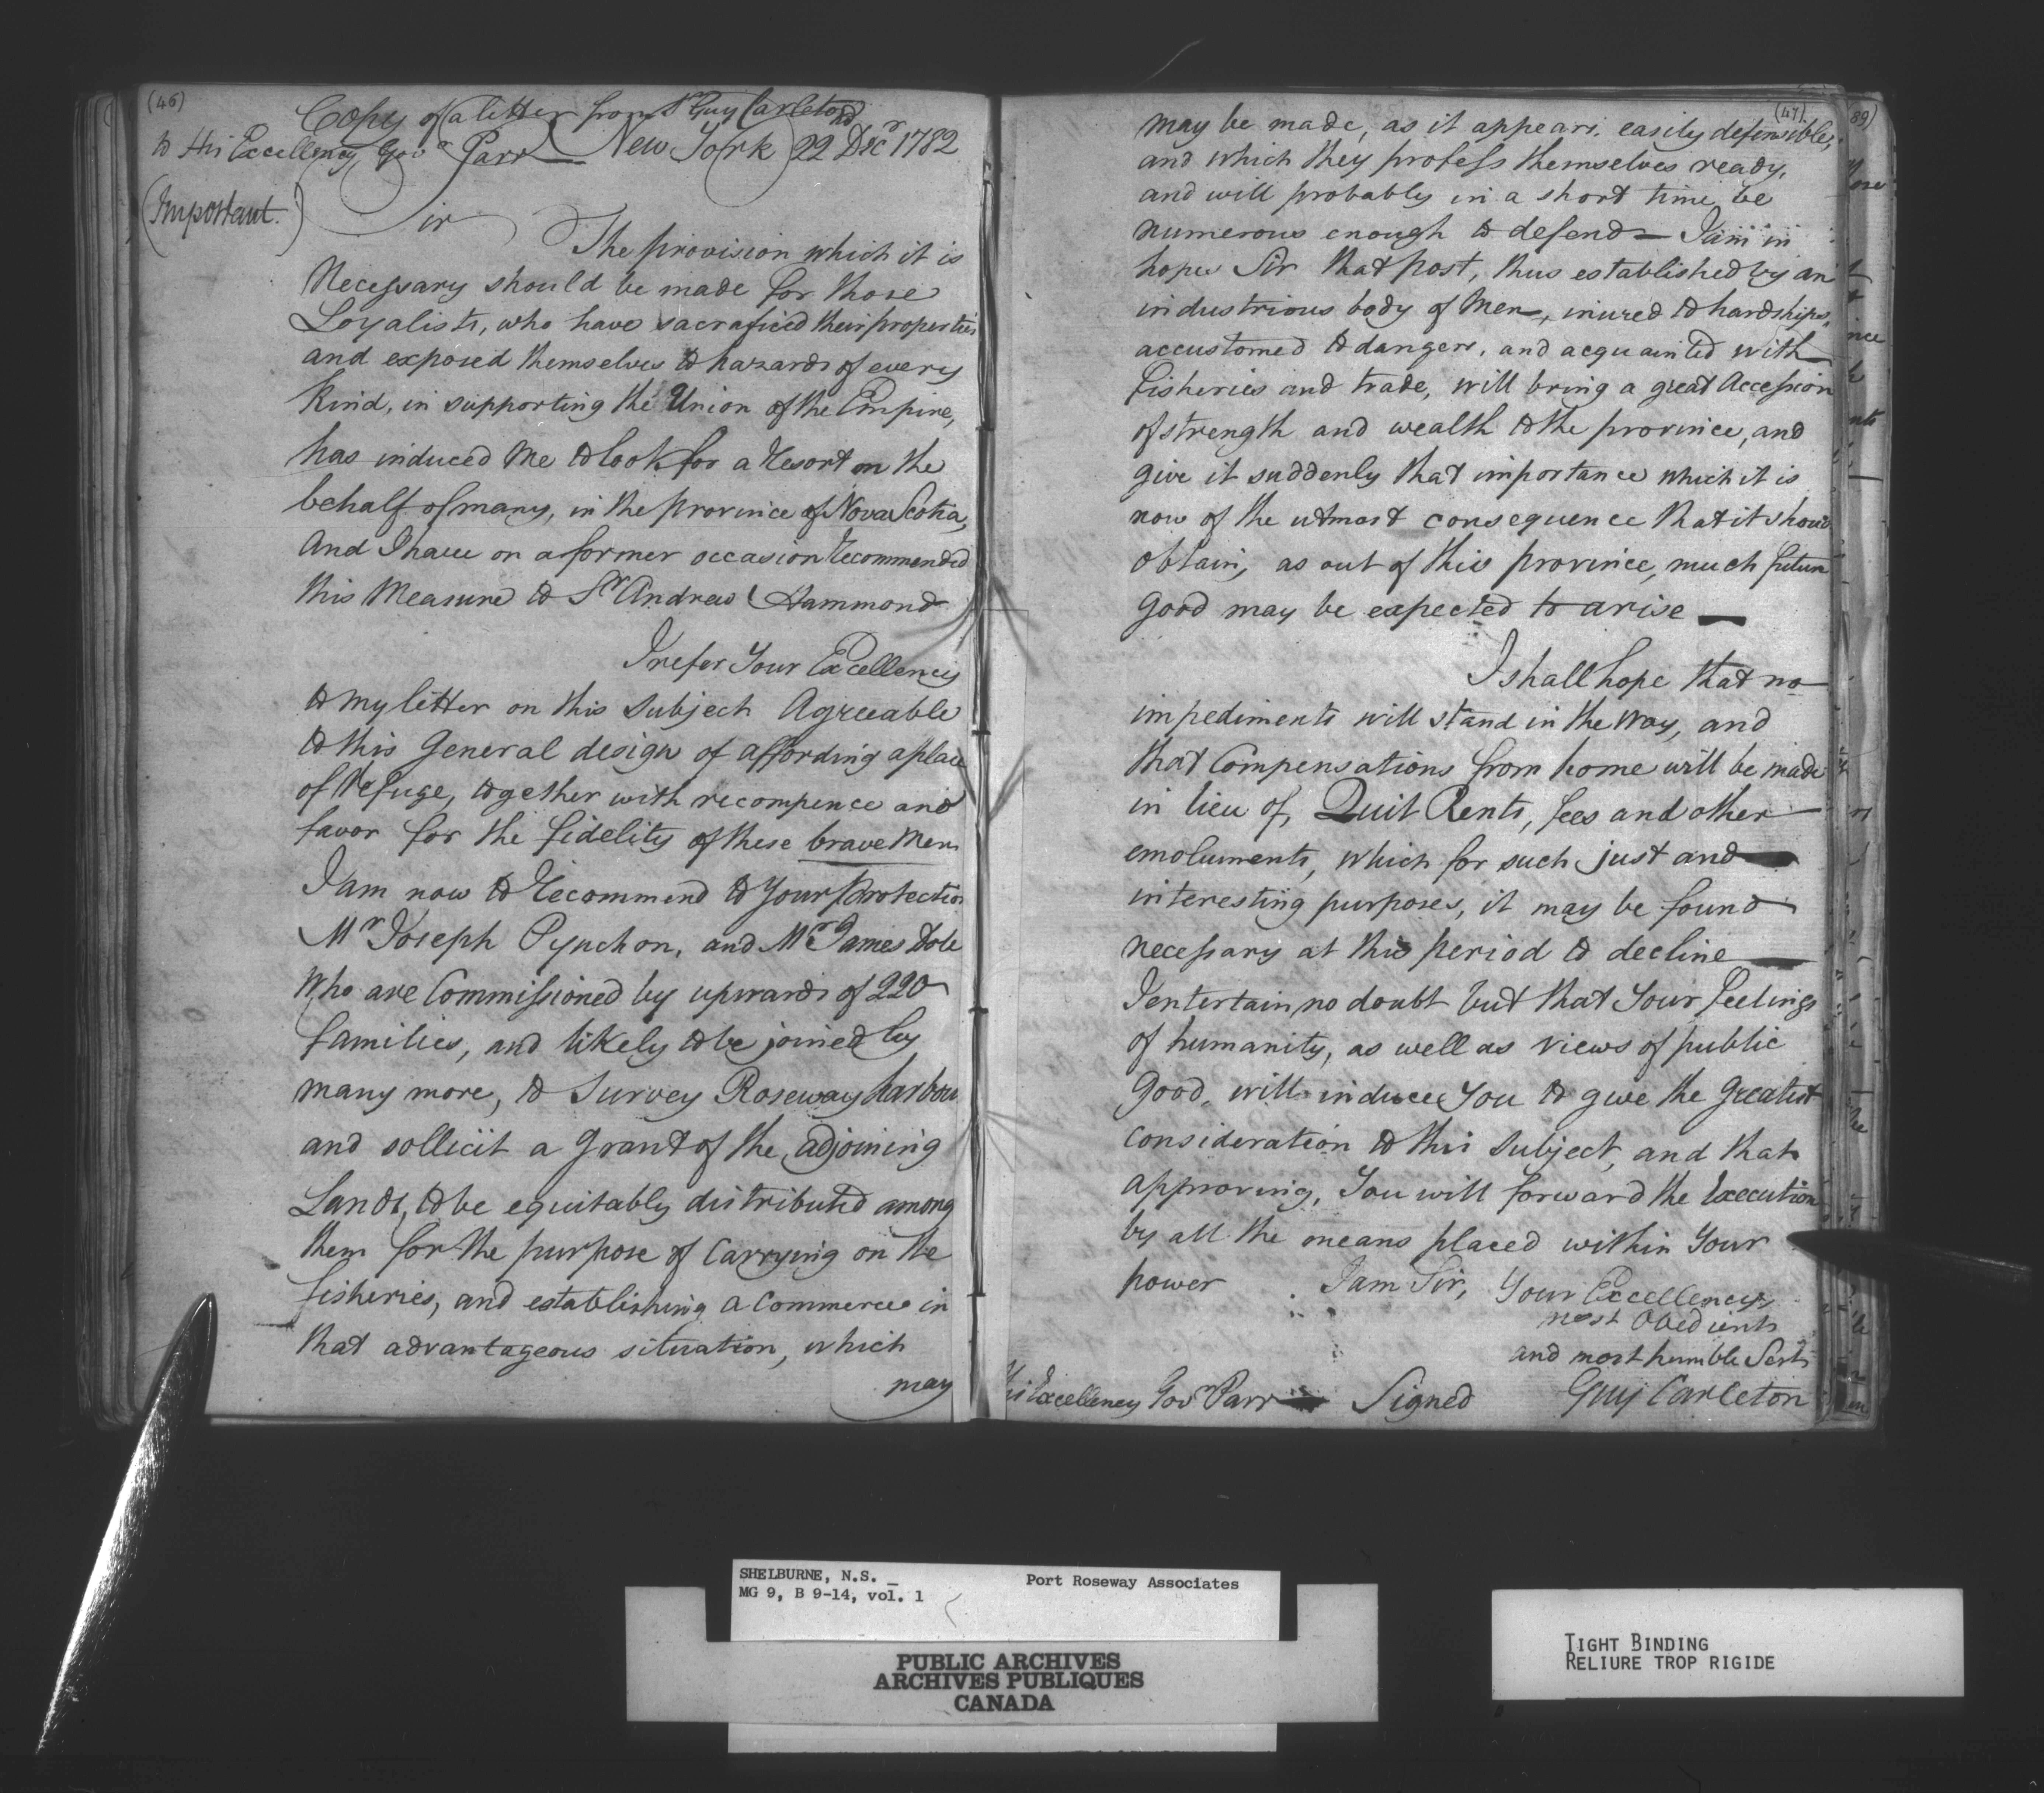 (46)
Copy of a letter from Sr Guy Carleton
to His Excellency Govr Parr — New York 22nd Decr 1782
(Important.)
Sir
The provision which it is
Necessary should be made for those
Loyalists, who have sacraficed their properties
and exposed themselves to hazards of every
Kind, in supporting the Union of the Empire,
has induced Me to look for a Resort on the
behalf of many, in the province of Nova Scotia,
And I have on a former occasion Recommended
this Measure to Sr Andrew Hammond
I refer Your Excellency
to my letter on this Subject Agreeable
to this General design of affording a place
of Refuge, together with recompence and
favor for the fidelity of these brave Men
I am now to Recommend to Your Protection
Mr Joseph Pynchon, and Mr James Dole
Who are Commissioned by upwards of 220
families, and likely to be joined by
many more, to Survey Roseway harbour
and sollicit a Grant of the adjoining
Lands, to be equitably distributed among
them for the purpose of Carrying on the
fisheries, and establishing a Commerce in
that advantageous situation, which
may
(47)
may be made, as it appears, easily defensible,
and which they profess themselves ready,
and will probably in a short time, be
numerous enough to defend — I am in
hopes Sir that post, thus established by an
industrious body of Men, inured to hardships,
accustomed to dangers, and acquainted with
fisheries and trade, will bring a great Accession
of strength and wealth to the province, and
give it suddenly that importance which it is
now of the utmost consequence that it should
obtain, as out of this province, much future
good may be expected to arise —
I shall hope that no
impediments will stand in the way, and
that Compensations from home will be made
in lieu of, Quit Rents, fees and other
emoluments, which for such just and
interesting purposes, it may be found
necessary at this period to decline —
I entertain no doubt but that Your feelings
of humanity, as well as views of public
Good, will induce You to give the Greatest
consideration to this Subject, and that
approving, You will forward the Execution
by all the means placed within Your
power I am Sir, Your Excellency's
most Obedient
and most humble Servt
His Excellency Govr Parr — Signed Guy Carleton
(89)
SHELBURNE, N.S. Port Roseway Associates
MG 9, B 9-14, vol. 1
PUBLIC ARCHIVES
ARCHIVES PUBLIQUES
CANADA
TIGHT BINDING
RELIURE TROP RIGIDE